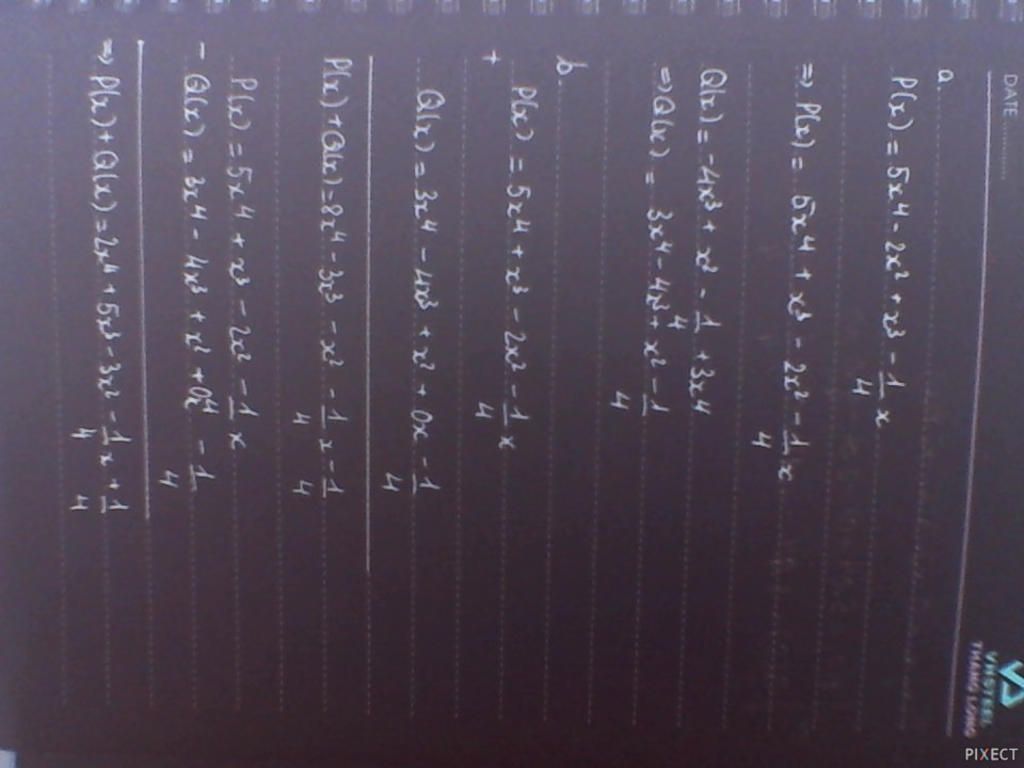 DATE
VNSTEEL
THANG LONG
a.
P(x) = 5x⁴ - 2x² + x³ - 1/4 x
=> P(x) = 5x⁴ + x³ - 2x² - 1/4 x
Q(x) = -4x³ + x² - 1/4 + 3x4
=> Q(x) = 3x⁴ - 4x³ + x² - 1/4
b.
P(x) = 5x⁴ + x³ - 2x² - 1/4 x
+
Q(x) = 3x⁴ - 4x³ + x² + 0x - 1/4
P(x) + Q(x) = 8x⁴ - 3x³ - x² - 1/4 x - 1/4
P(x) = 5x⁴ + x³ - 2x² - 1/4 x
- Q(x) = 3x⁴ - 4x³ + x² + 0x - 1/4
=> P(x) + Q(x) = 2x⁴ + 5x³ - 3x² - 1/4 x + 1/4
PIXECT